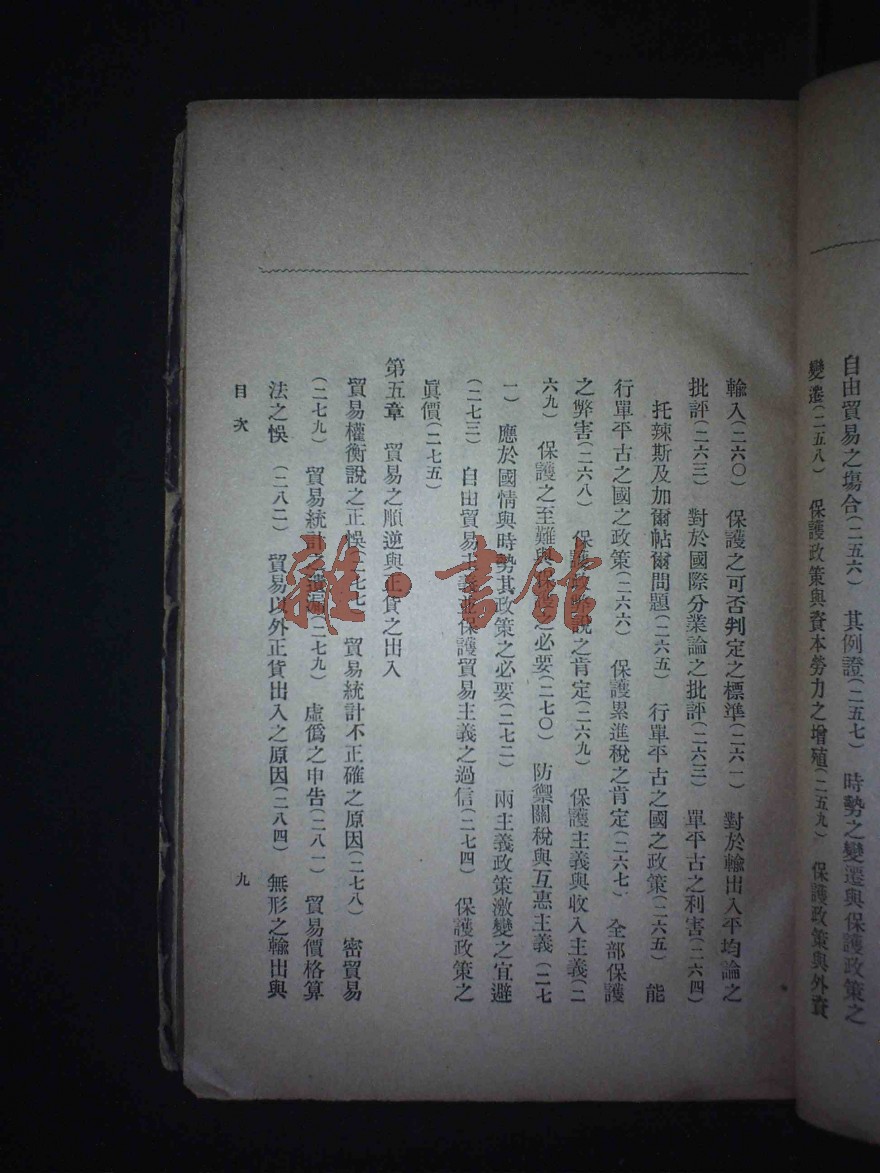 自由貿易之塲合(二五六)　其例證(二五七)　時勢之變遷與保護政策之
變遷(二五八)　保護政策與資本勞力之增殖(二五九)　保護政策與外資
輸入(二六〇)　保護之可否判定之標準(二六一)　對於輸出入平均論之
批評(二六三)　對於國際分業論之批評(二六三)　單平古之利害(二六四)
托辣斯及加爾帖爾問題(二六五)　行單平古之國之政策(二六五)　能
行單平古之國之政策(二六六)　保護累進稅之肯定(二六七)　全部保護
之弊害(二六八)　保護政 說之肯定(二六九)　保護主義與收入主義(二
六九)　保護之至難與 之必要(二七〇)　防禦關稅與互惠主義(二七
一)　應於國情與時勢其政策之必要(二七二)　兩主義政策激變之宜避
(二七三)　自由貿易主義並保護貿易主義之過信(二七四)　保護政策之
眞價(二七五)
第五章　貿易之順逆與正貨之出入
貿易權衡說之正悞(二七七　貿易統計不正確之原因(二七八)　密貿易
(二七九)　貿易統計之 漏(二七九)　虛僞之申告(二八一)　貿易價格算
法之悞　(二八二)　貿易以外正貨出入之原因(二八四)　無形之輸出與
目次　九
雜·書館